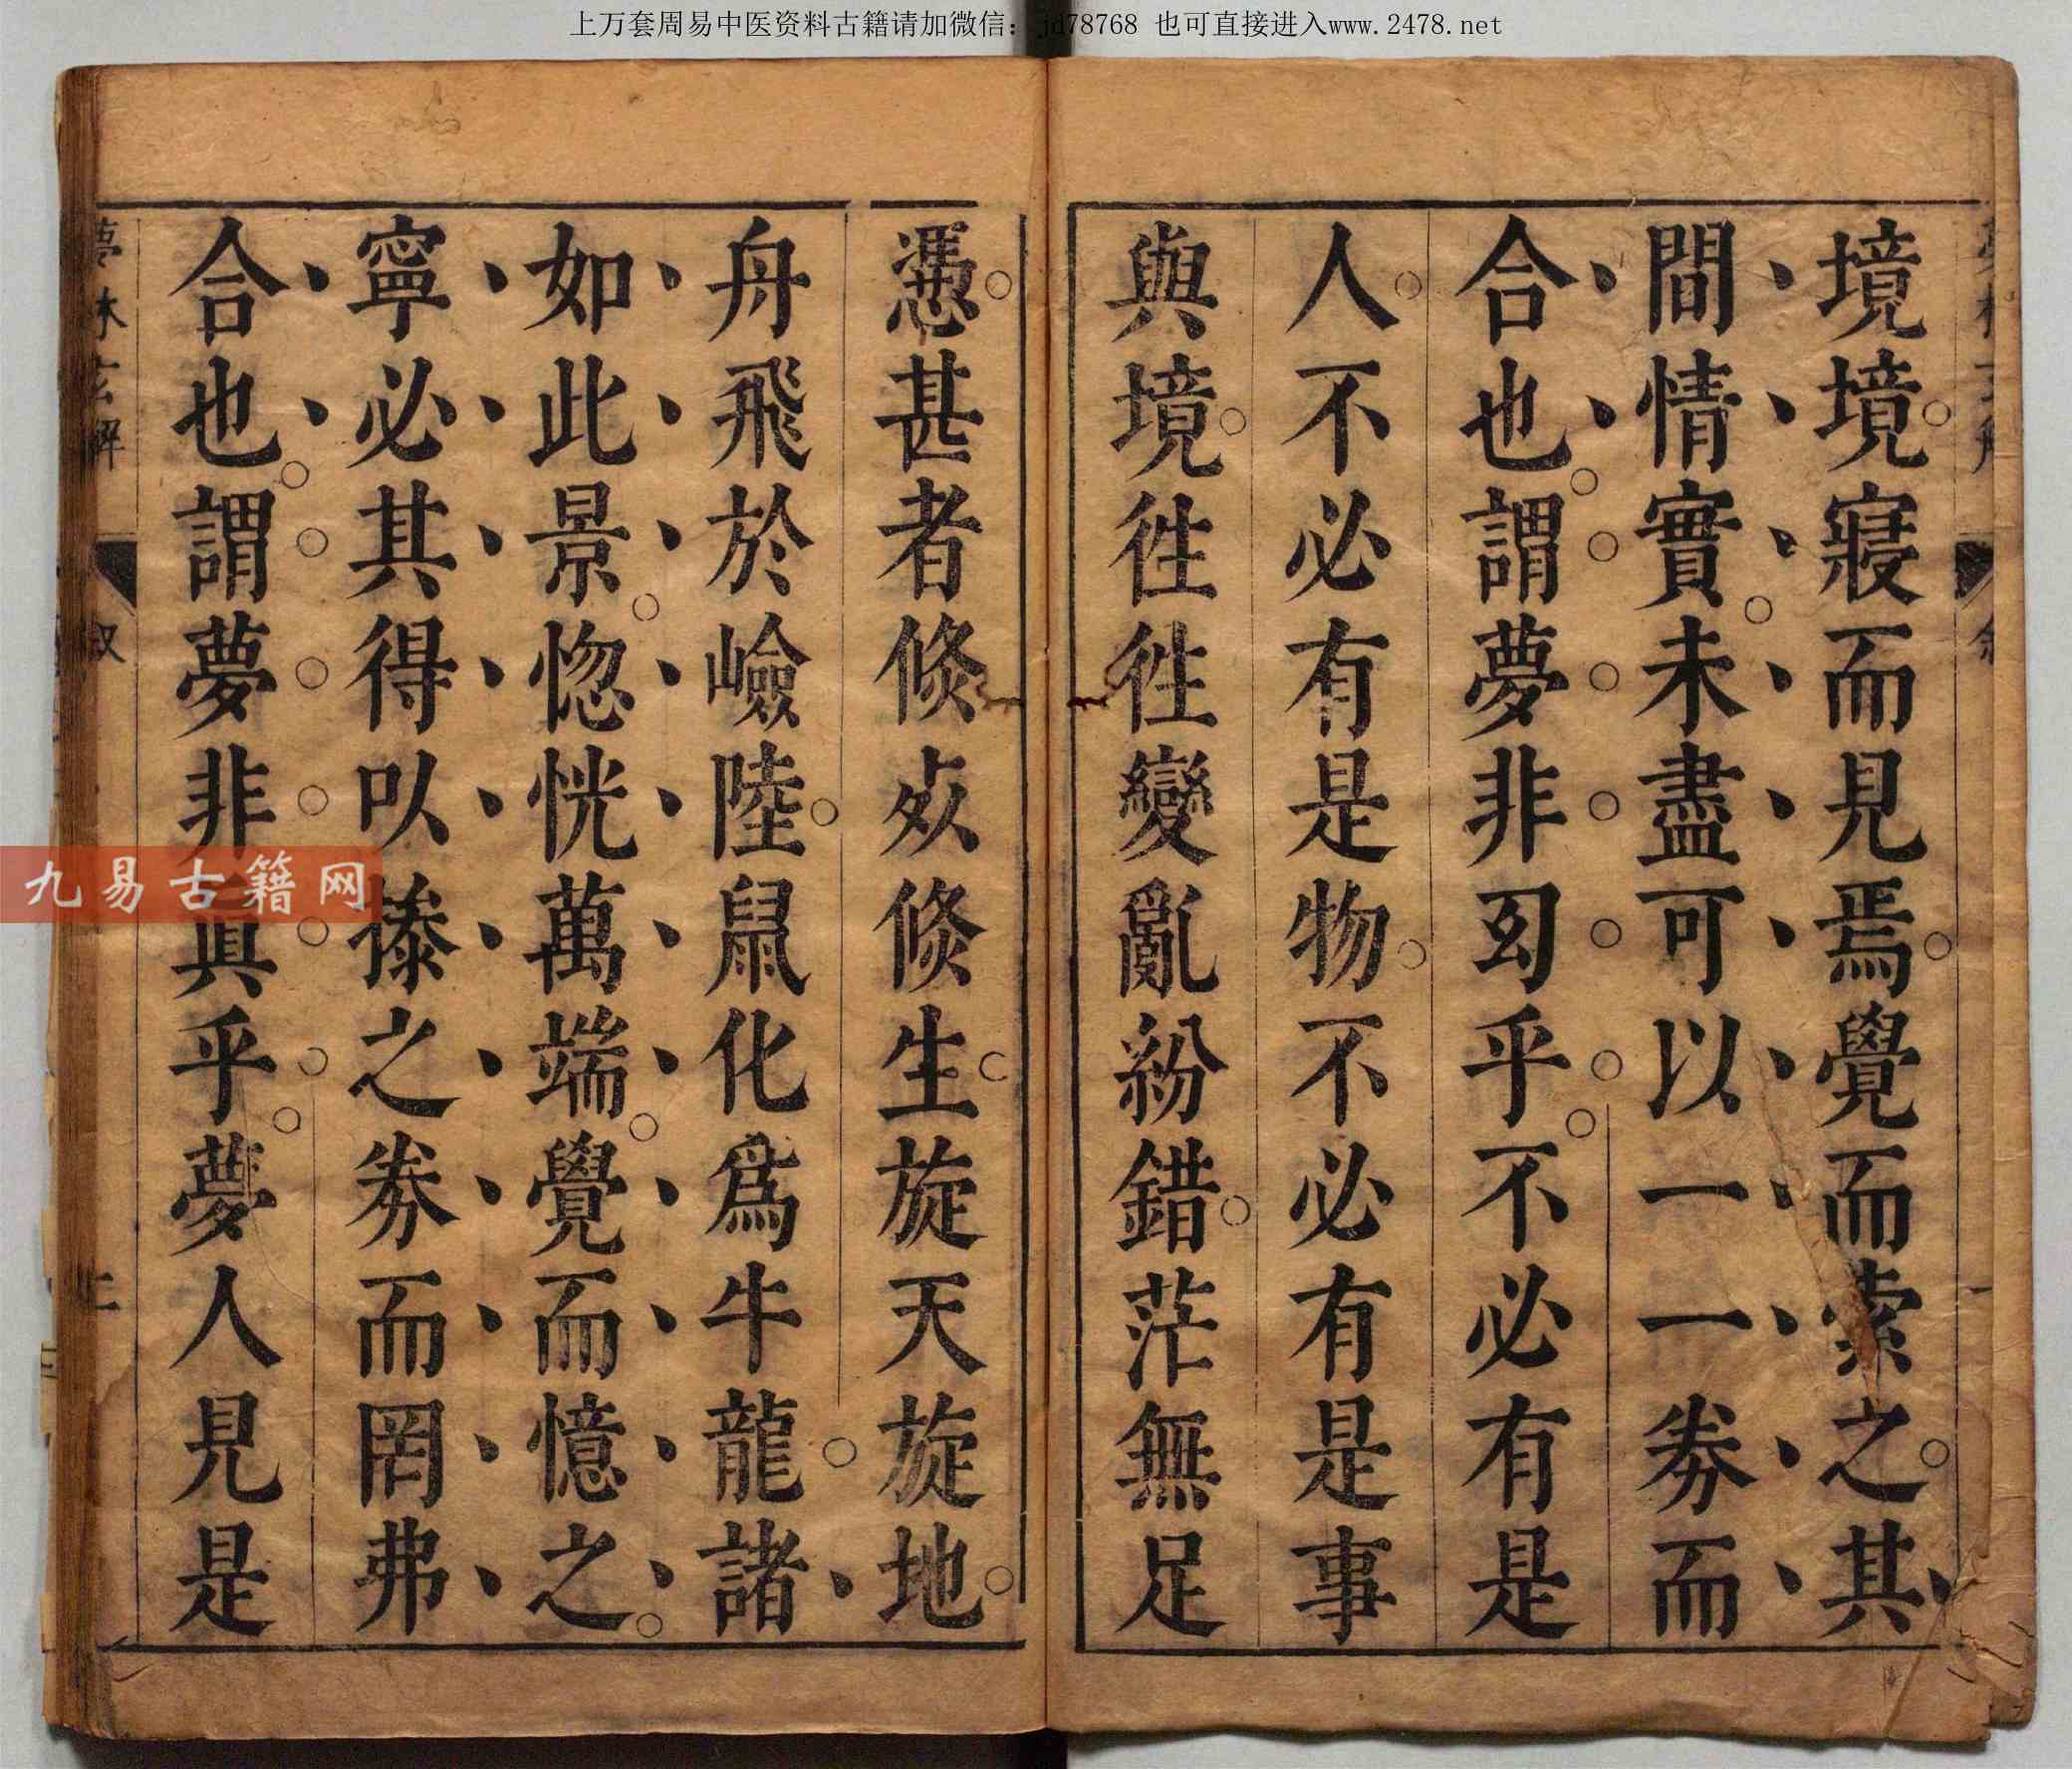 上万套周易中医资料古籍请加微信：jd78768 也可直接进入www.2478.net
境境寢而見焉覺而索之其
間情實未盡可以一一劵而
合也謂夢非幻乎不必有是
人不必有是物不必有是事
與境徃徃變亂紛錯茫無足
憑甚者倐歿倐生旋天旋地
舟飛於嶮陸鼠化爲牛龍諸
如此景惚恍萬端覺而憶之
寧必其得以㨿之劵而罔弗
合也謂夢非眞乎夢人見是
夢林玄解
叙
二
九易古籍网